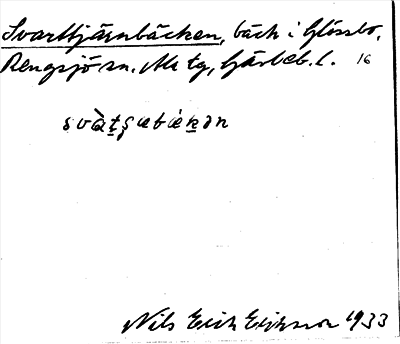 Svarttjärnbäcken, bäck i Glössbo,
Rengsjö sn. Ala tg, Gävleb. l. 16
svàt̠ʂæbæ̀k̠ən
Nils Erik Eriksson 1933